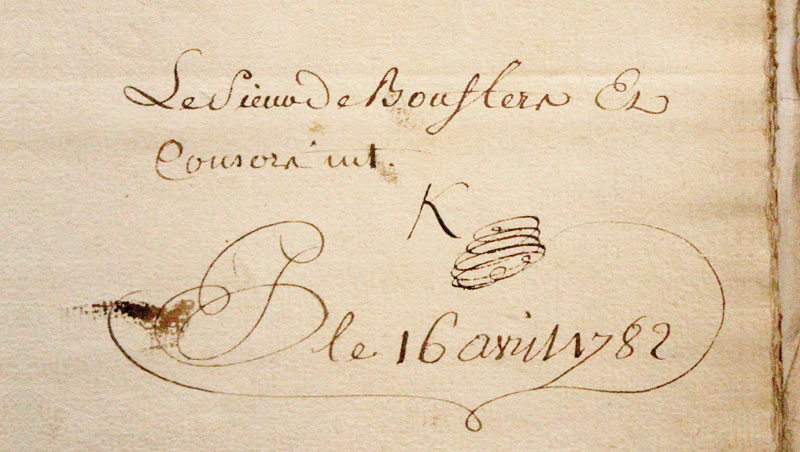 Le Sieur de Bouflers Et
Consors int.
K
P le 16 avril 1782